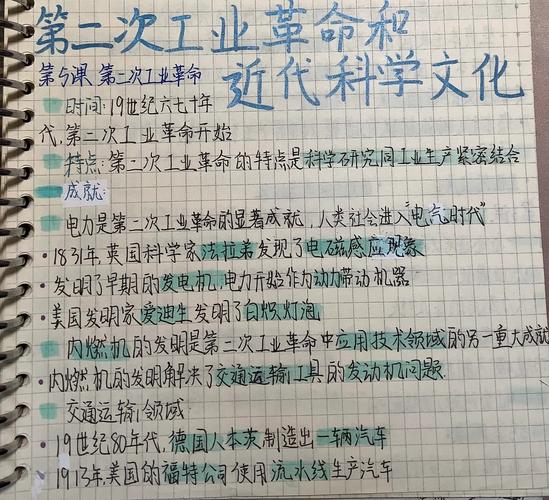 第二次工业革命和
近代科学文化
第5课 第二次工业革命
时间:19世纪六七十年
代,第二次工业革命开始
特点:第二次工业革命的特点是科学研究同工业生产紧密结合
成就:
电力是第二次工业革命的显著成就,人类社会进入"电气时代"
·1831年,英国科学家法拉弟发现了电磁感应现象
·发明了早期的发电机,电力开始作为动力带动机器
·美国发明家爱迪生发明了白炽灯泡
内燃机的发明是第二次工业革命中应用技术领域的另一重大成就
·内燃机的发明解决了交通运输工具的发动机问题
交通运输领域
·19世纪80年代,德国人本茨制造出一辆汽车
·1913年,美国的福特公司使用流水线生产汽车